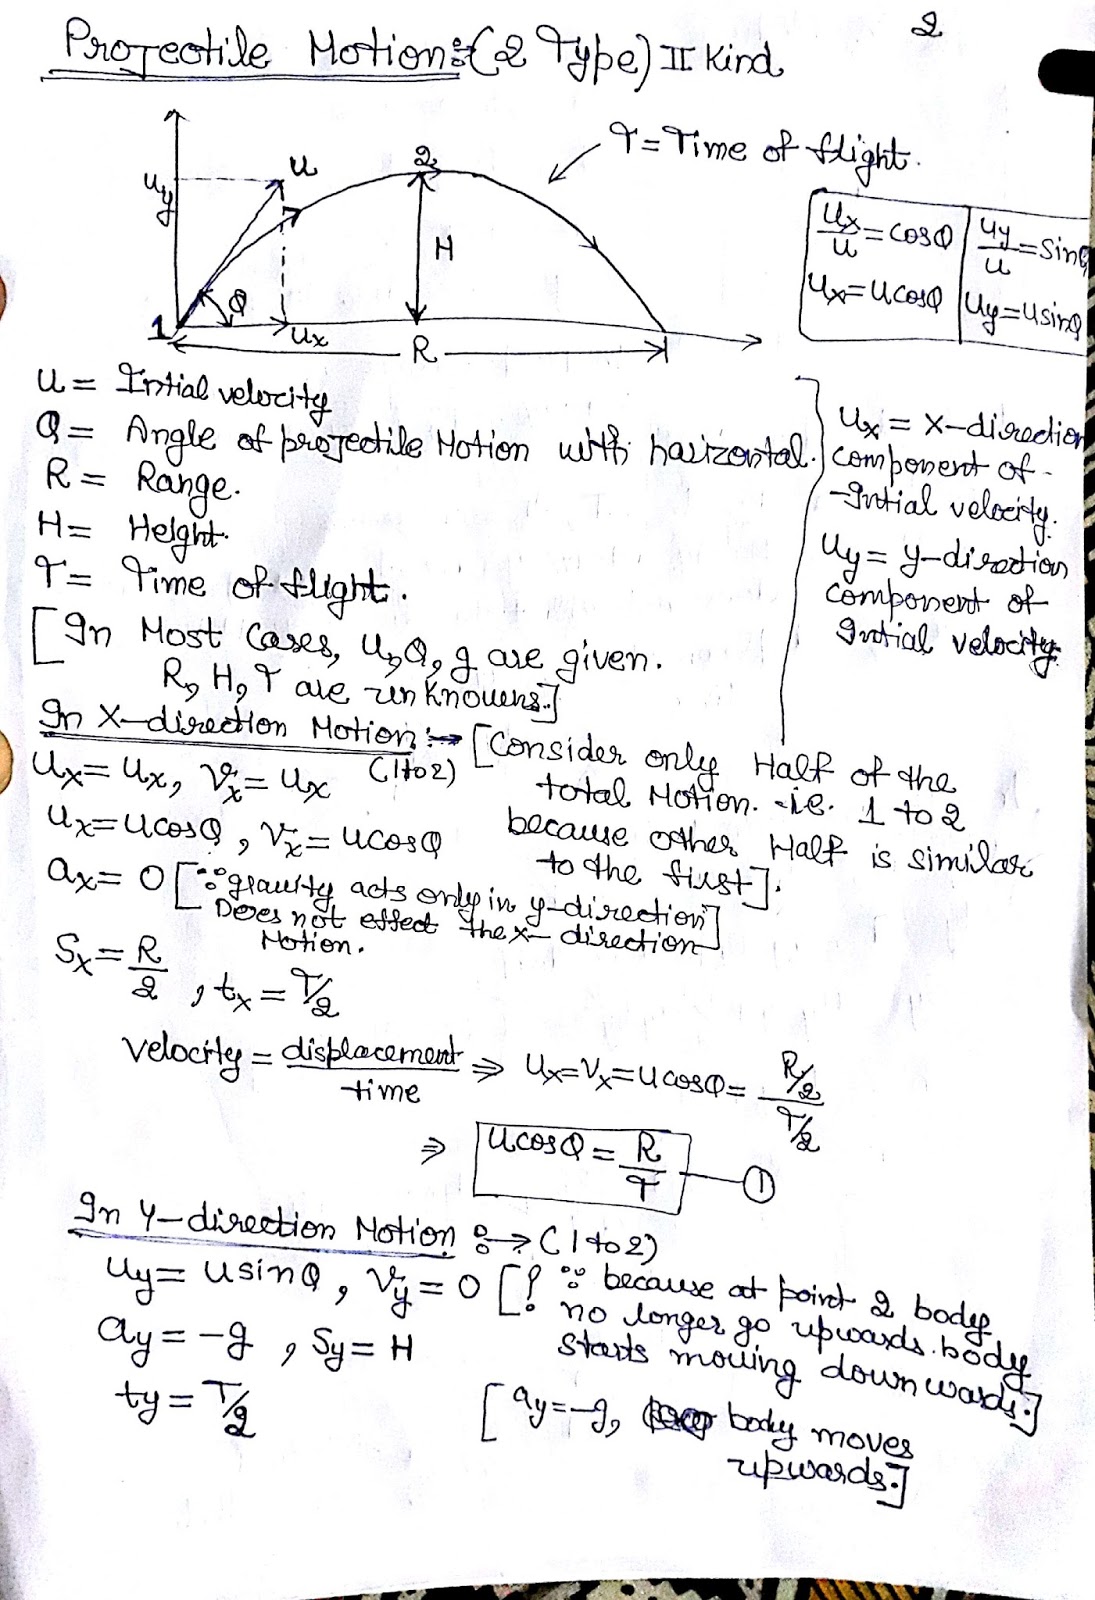 2
Projectile Motion:-(2 Type) II Kind
T = Time of flight.
uy
u
2
H
θ
1
ux
R
ux/u = cosθ | uy/u = sinθ
ux = ucosθ | uy = usinθ
u = Intial velocity
θ = Angle of projectile Motion with haizontal.
R = Range.
H = Height.
T = Time of flight.
[In Most cases, u, θ, g are given.
R, H, T are unknowens.]
ux = x-direction
component of
Intial velocity.
uy = y-direction
component of
Intial velocity.
In X-direction Motion :→ [Consider only Half of the
(1 to 2)
total Motion. i.e. 1 to 2
because other Half is similar
to the first].
ux = ux, vx = ux
ux = ucosθ, vx = ucosθ
ax = 0 [∵ gravity acts only in y-direction]
Does not effect the x-direction]
Motion.
Sx = R/2, tx = T/2
velocity = displacement/time ⇒ ux = vx = ucosθ = R/2 / T/2
⇒ ucosθ = R/T — ①
In Y-direction Motion :→ (1 to 2)
uy = usinθ, vy = 0 [∵ because at point 2 body
no longer go upwards. body
starts moving downwards.]
ay = -g, Sy = H
ty = T/2
[ay = -g, body moves
upwards.]